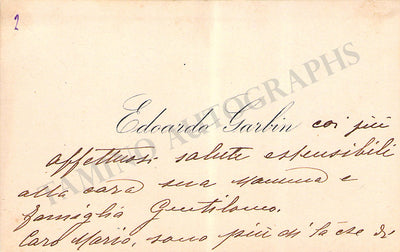 2
TAMINO AUTOGRAPHS
Edoardo Garbin coi più
affettuosi saluti estensibili
alla cara sua Mamma e
famiglia Gentilomo.
Caro Mario, sono più di